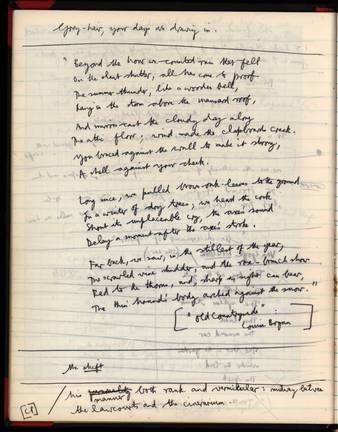 Grey-hair, your days are drawing in.
"Beyond the hour we counted rain that fell
On the slant shutter, all has come to proof.
The summer thunder, like a wooden bell,
Rang in the storm above the mansard roof,
And mirrors cast the cloudy day along
The attic floor; wind made the clapboards creak.
You braced against the wall to make it strong,
A shell against your cheek.
Long since, we pulled brown oak-leaves to the ground
In a winter of dry trees; we heard the cock
Shout its unplaceable cry, the axe's sound
Delay a moment after the axe's stroke.
Far back, we saw, in the stillest of the year,
The scrawled vine shudder, and the rose-branch show
Red to the thorns, and, sharp as sight can bear,
The thin hound's body arched against the snow."
["Old Countryside":
Louise Bogan
the shift
his manner both rank and vernicular: midway between
the lawcourts and the